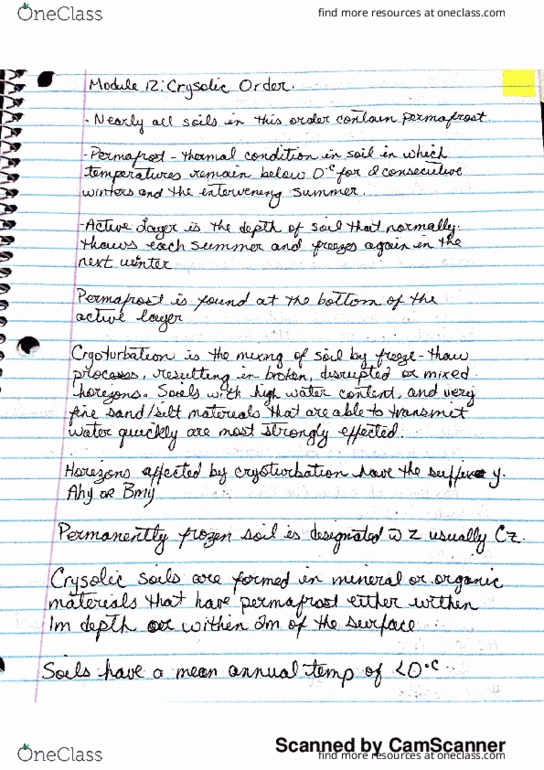 OneClass
find more resources at oneclass.com
Module 12: Crysolic Order.
- Nearly all soils in this order contain permafrost.
- Permafrost - thermal condition in soil in which
temperatures remain below 0°C for 2 consecutive
winters and the intervening summer.
- Active Layer is the depth of soil that normally
thaws each summer and freezes again in the
next winter
Permafrost is found at the bottom of the
active layer
Cryoturbation is the mixng of soil by freeze-thaw
processes, resulting in broken, disrupted or mixed
horezons. Soils with high water content, and very
fine sand/silt materials that are able to transmit
water quickly are most strongly effected.
Horezons affected by cryoturbation have the suffix y.
Ahy or Bmy
Permanently frozen soil is designated w z usually Cz.
Crysolic soils are formed in mineral or organic
materials that have permafrost either within
1m depth or within 2m of the surface
Soils have a mean annual temp of <0°C
Scanned by CamScanner
OneClass
find more resources at oneclass.com